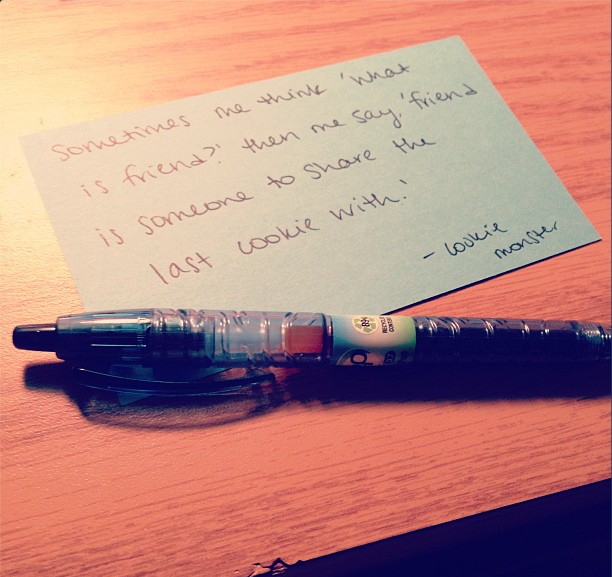 sometimes me think 'what
is friend?' then me say, 'friend
is someone to share the
last cookie with.'
- cookie
monster
89%
RECYCLED
CONTENT